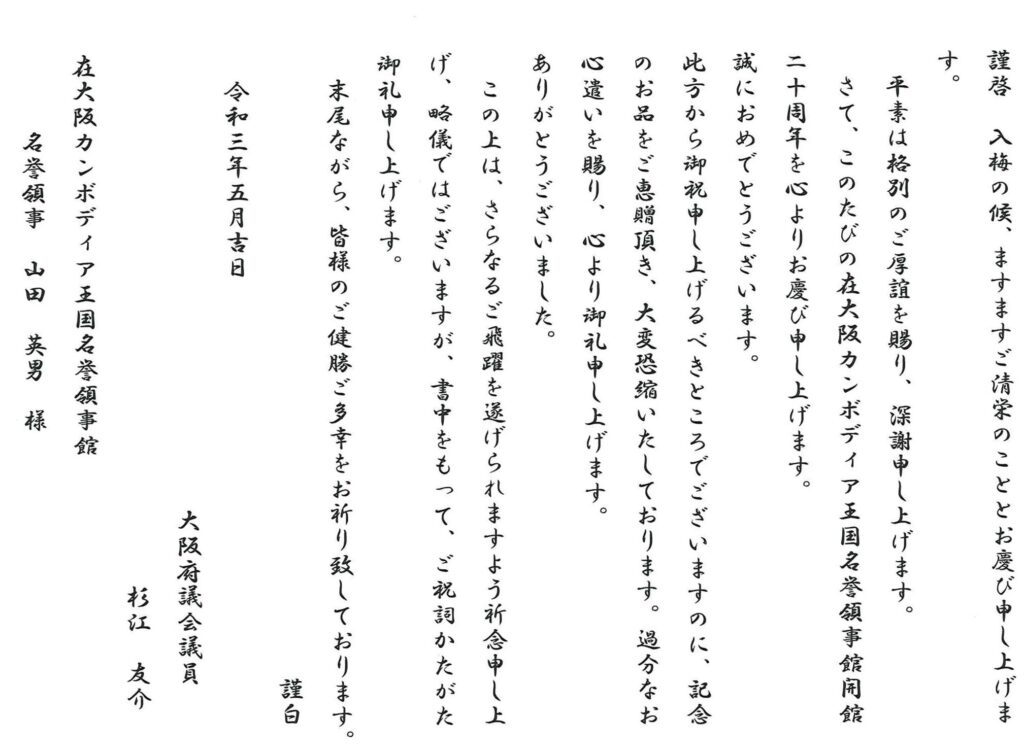 謹啓　入梅の候、ますますご清栄のこととお慶び申し上げま
す。
平素は格別のご厚誼を賜り、深謝申し上げます。
さて、このたびの在大阪カンボディア王国名誉領事館開館
二十周年を心よりお慶び申し上げます。
誠におめでとうございます。
此方から御祝申し上げるべきところでございますのに、記念
のお品をご恵贈頂き、大変恐縮いたしております。過分なお
心遣いを賜り、心より御礼申し上げます。
ありがとうございました。
この上は、さらなるご飛躍を遂げられますよう祈念申し上
げ、略儀ではございますが、書中をもって、ご祝詞かたがた
御礼申し上げます。
末尾ながら、皆様のご健勝ご多幸をお祈り致しております。
謹白
令和三年五月吉日
大阪府議会議員
杉江　友介
在大阪カンボディア王国名誉領事館
名誉領事　山田　英男　様